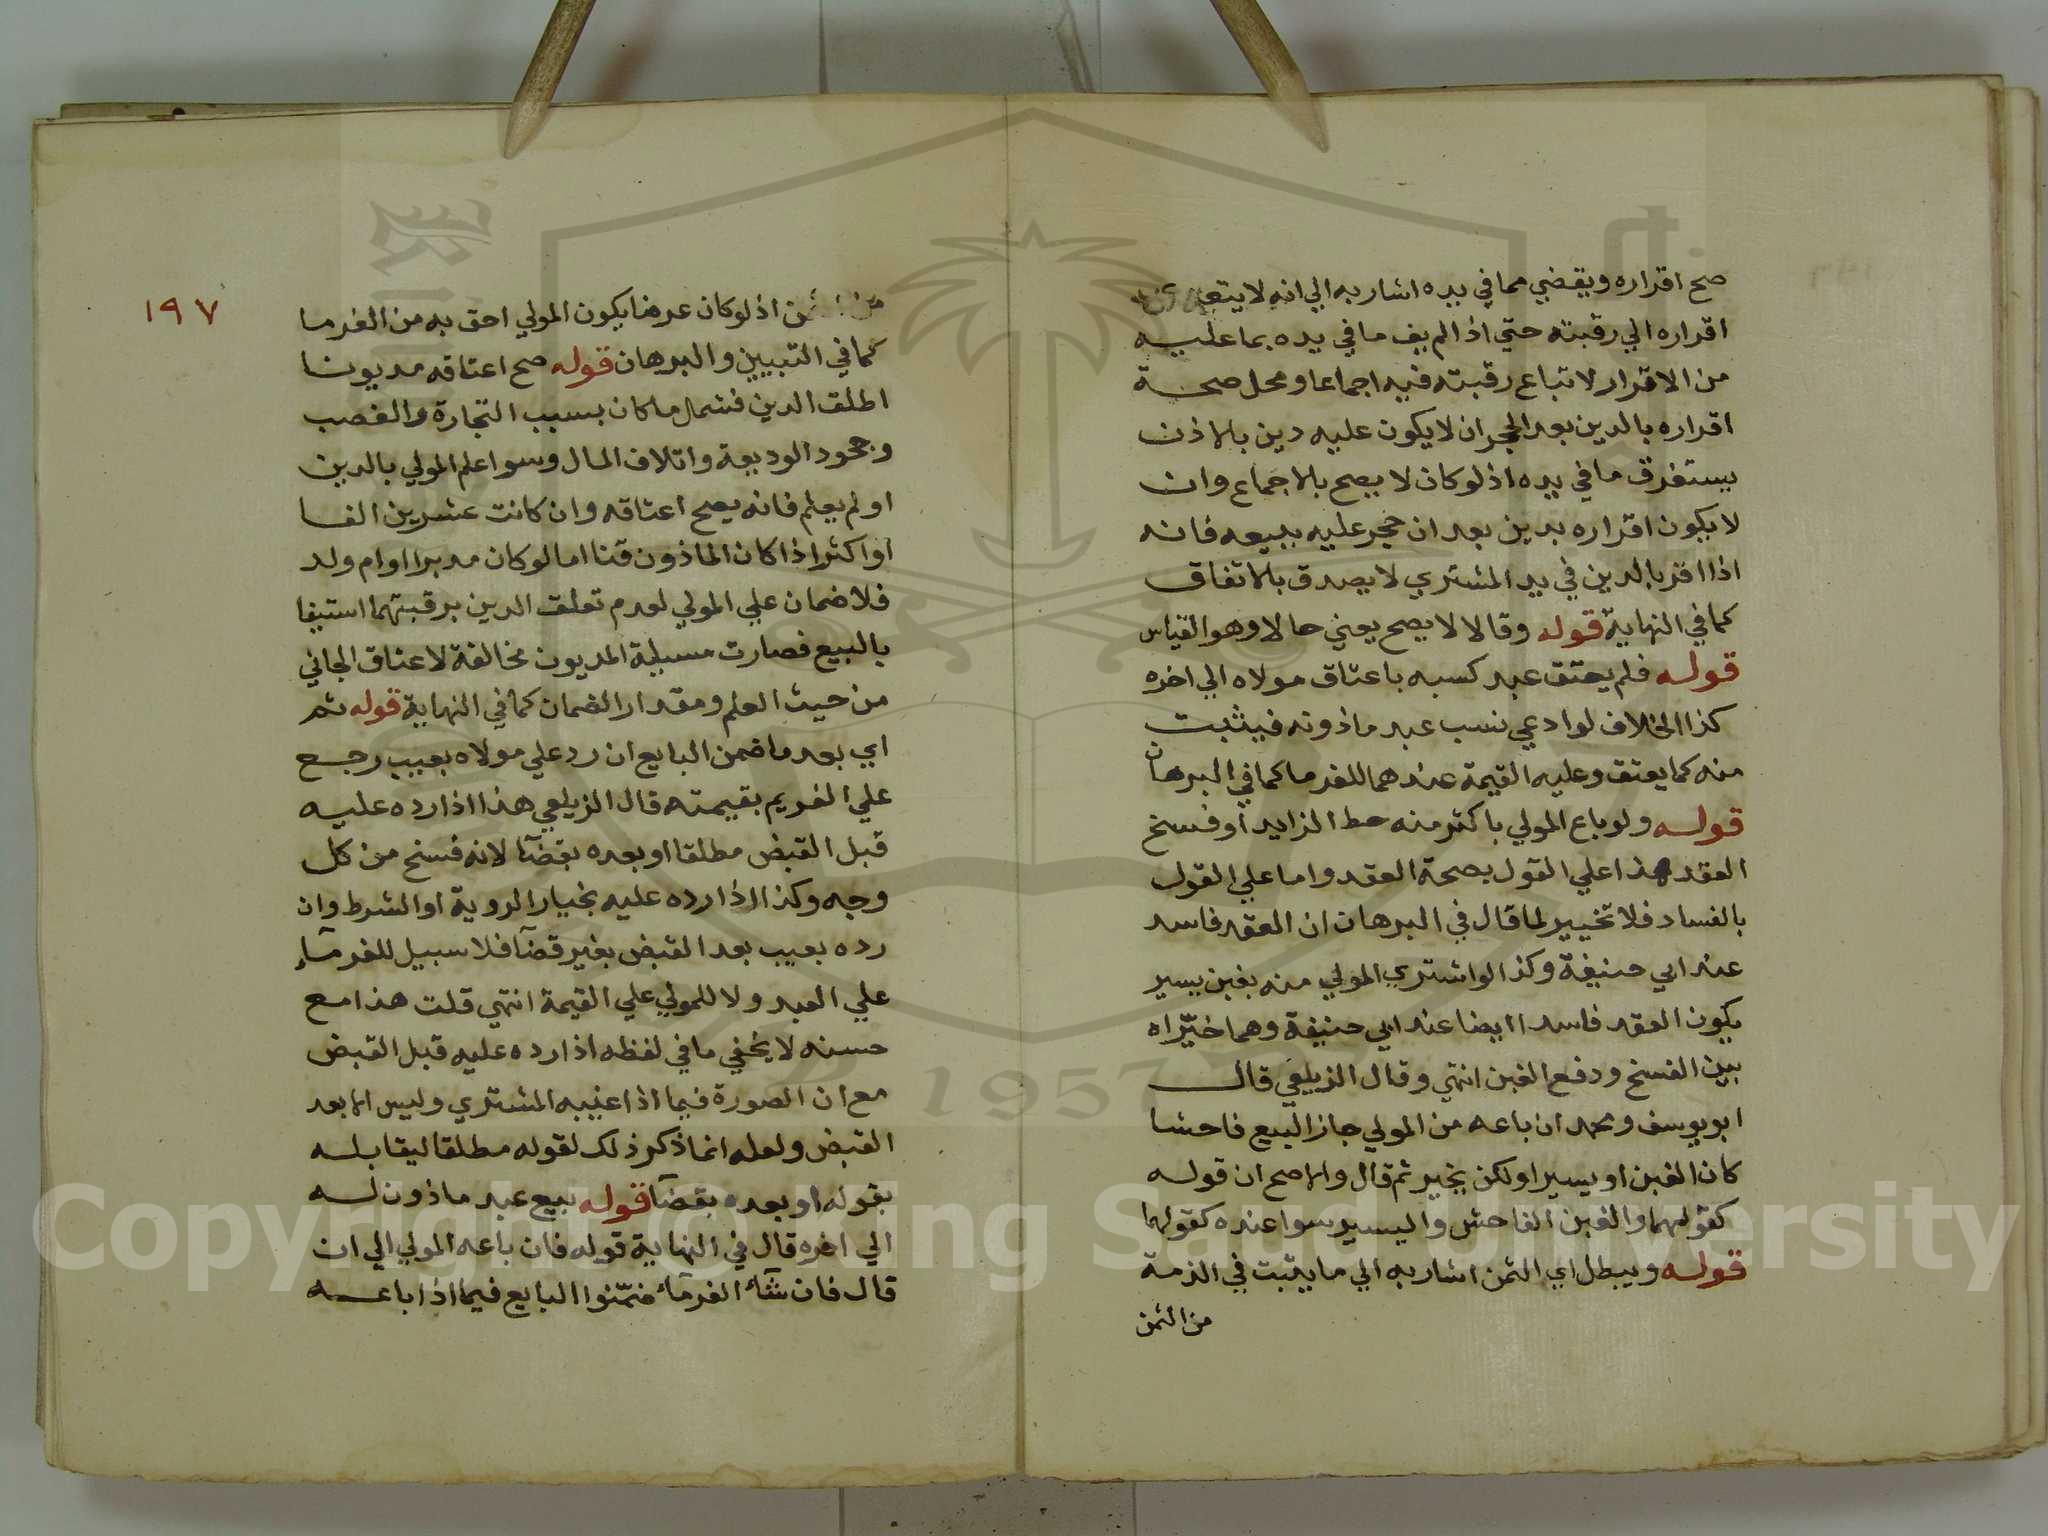 صح اقراره ويقضي مما في يده اشار به الي انه لا يتعدي
اقراره الي رقبته حتي اذا لم يف ما في يده بما عليه
من الاقرار لا تباع رقبته فيه اجماعا ومحل صحة
اقراره بالدين بعد الحجر ان لا يكون عليه دين بالاذن
يستغرق ما في يده اذ لو كان لا يصح بالاجماع وان
لا يكون اقراره بدين بعد ان حجر عليه ببيعه فانه
اذا اقر بالدين في يد المشتري لا يصدق بالاتفاق
كما في النهاية قوله وقالا لا يصح يعني حالا وهو القياس
قوله فلم يعتق عبد كسبه باعتاق مولاه الي اخره
كذا الخلاف لو ادعي نسب عبد ماذونه فيثبت
منه كما يعتق وعليه القيمة عندهما للغرما كما في البرهان
قوله ولو باع المولي باكثر منه حط الزايد او فسخ
العقد هذا علي القول بصحة العقد واما علي القول
بالفساد فلا تخيير لما قال في البرهان ان العقد فاسد
عند ابي حنيفة وكذا لو اشتري المولي منه بغبن يسير
يكون العقد فاسدا ايضا عند ابي حنيفة وهما خيّراه
بين الفسخ ودفع الغبن انتهي وقال الزيلعي قال
ابو يوسف ومحمد ان باعه من المولي جاز البيع فاحشا
كان الغبن او يسيرا ولكن يخير ثم قال والاصح ان قوله
كقولهما والغبن الفاحش واليسير سوا عنده كقولهما
قوله ويبطل اي الثمن اشار به الي ما يثبت في الذمة
من الثمن
١٩٧
من الثمن اذ لو كان عرضا يكون المولي احق به من الغرما
كما في التبيين والبرهان قوله صح اعتاقه مديونا
اطلق الدين فشمل ما كان بسبب التجارة والغصب
وجحود الوديعة واتلاف المال وسوا علم المولي بالدين
او لم يعلم فانه يصح اعتاقه وان كانت عشرين الفا
او اكثر اذا كان الماذون قنا اما لو كان مدبرا او ام ولد
فلا ضمان علي المولي لعدم تعلق الدين برقبتهما استيفا
بالبيع فصارت مسيلة المديون مخالفة لاعتاق الجاني
من حيث العلم ومقدار الضمان كما في النهاية قوله ثم
اي بعد ما ضمن البايع ان رد علي مولاه بعيب رجع
علي الغريم بقيمته قال الزيلعي هذا اذا رده عليه
قبل القبض مطلقا او بعده بقضآ لانه فسخ من كل
وجه وكذا اذا رده عليه بخيار الروية او الشرط وان
رده بعيب بعد القبض بغير قضآ فلا سبيل للغرمآء
علي العبد ولا للمولي علي القيمة انتهي قلت هذا مع
حسنه لا يخفي ما في لفظه اذا رده عليه قبل القبض
مع ان الصورة فيما اذا غيبه المشتري وليس الا بعد
القبض ولعله انما ذكر ذلك لقوله مطلقا ليقابله
بقوله او بعده بقضآ قوله بيع عبد ماذون له
الي اخره قال في النهاية قوله فان باعه المولي الي ان
قال فان شآء الغرمآء ضمّنوا البايع فيما اذا باعه
Copyright © King Saud University
1957